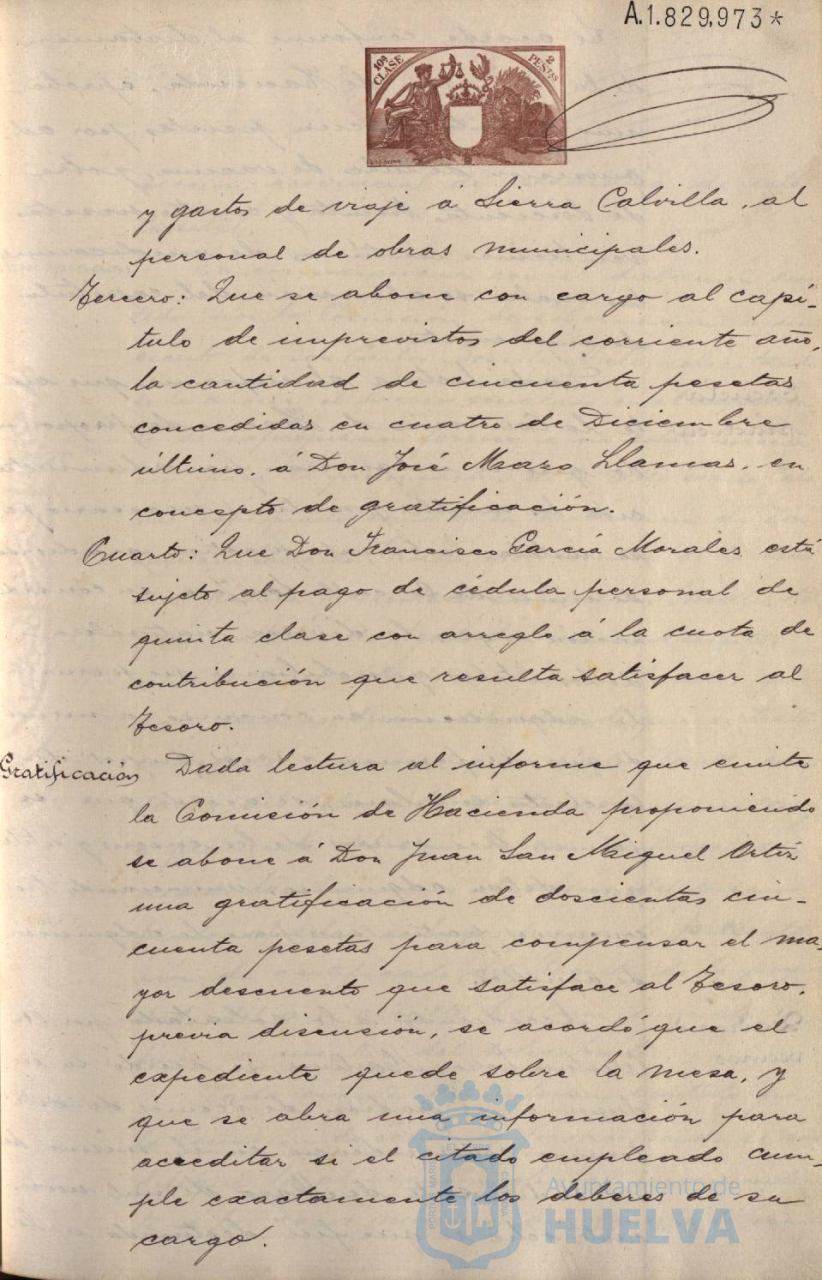 A.1.829,973*
10ª CLASE
2 PESETAS
y gastos de viaje á Sierra Calvilla, al
personal de obras municipales.
Tercero: Que se abone con cargo al capí-
tulo de imprevistos del corriente año,
la cantidad de cincuenta pesetas
concedidas en cuatro de Diciembre
último, á Don José Mazo Llamas, en
concepto de gratificación.
Cuarto: Que Don Francisco García Morales está
sujeto al pago de cédula personal de
quinta clase con arreglo á la cuota de
contribución que resulta satisfacer al
Tesoro.
Gratificación Dada lectura al informe que emite
la Comisión de Hacienda proponiendo
se abone á Don Juan San Miguel Ortiz
una gratificación de doscientas cin-
cuenta pesetas para compensar el ma-
yor descuento que satisface al Tesoro,
previa discusión, se acordó que el
expediente quede sobre la mesa, y
que se abra una información para
acreditar si el citado empleado cum-
ple exactamente los deberes de su
cargo.
Ayuntamiento de
HUELVA